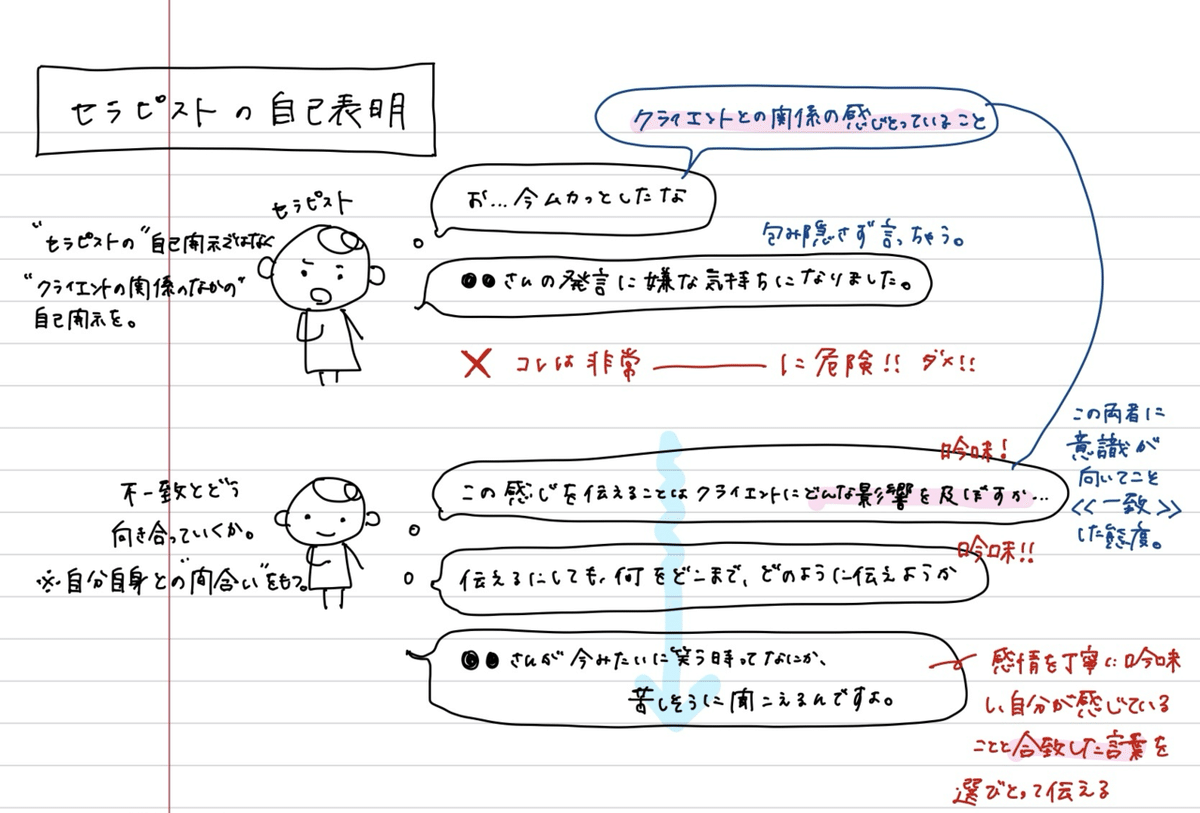 セラピストの自己表明
クライエントとの関係の感じとっていること
お…今ムカっとしたな
セラピスト
包み隠さず言っちゃう。
"セラピストの"自己開示ではなく
"クライエントの関係のなかの"
自己開示を。
●●さんの発言に嫌な気持ちになりました。
✕ コレは非常――――に危険!! ダメ!!
この両者に
意識が
向いてこと
<<一致>>
した態度。
吟味!
この感じを伝えることはクライエントにどんな影響を及ぼすか…
不一致とどう
向き合っていくか。
※自分自身との"間合い"をもつ。
吟味!!
伝えるにしても、何をどこまで、どのように伝えようか
●●さんが今みたいに笑う時ってなにか、
苦しそうに聞こえるんですよ。
感情を丁寧に吟味
し、自分が感じている
ことと合致した言葉を
選びとって伝える